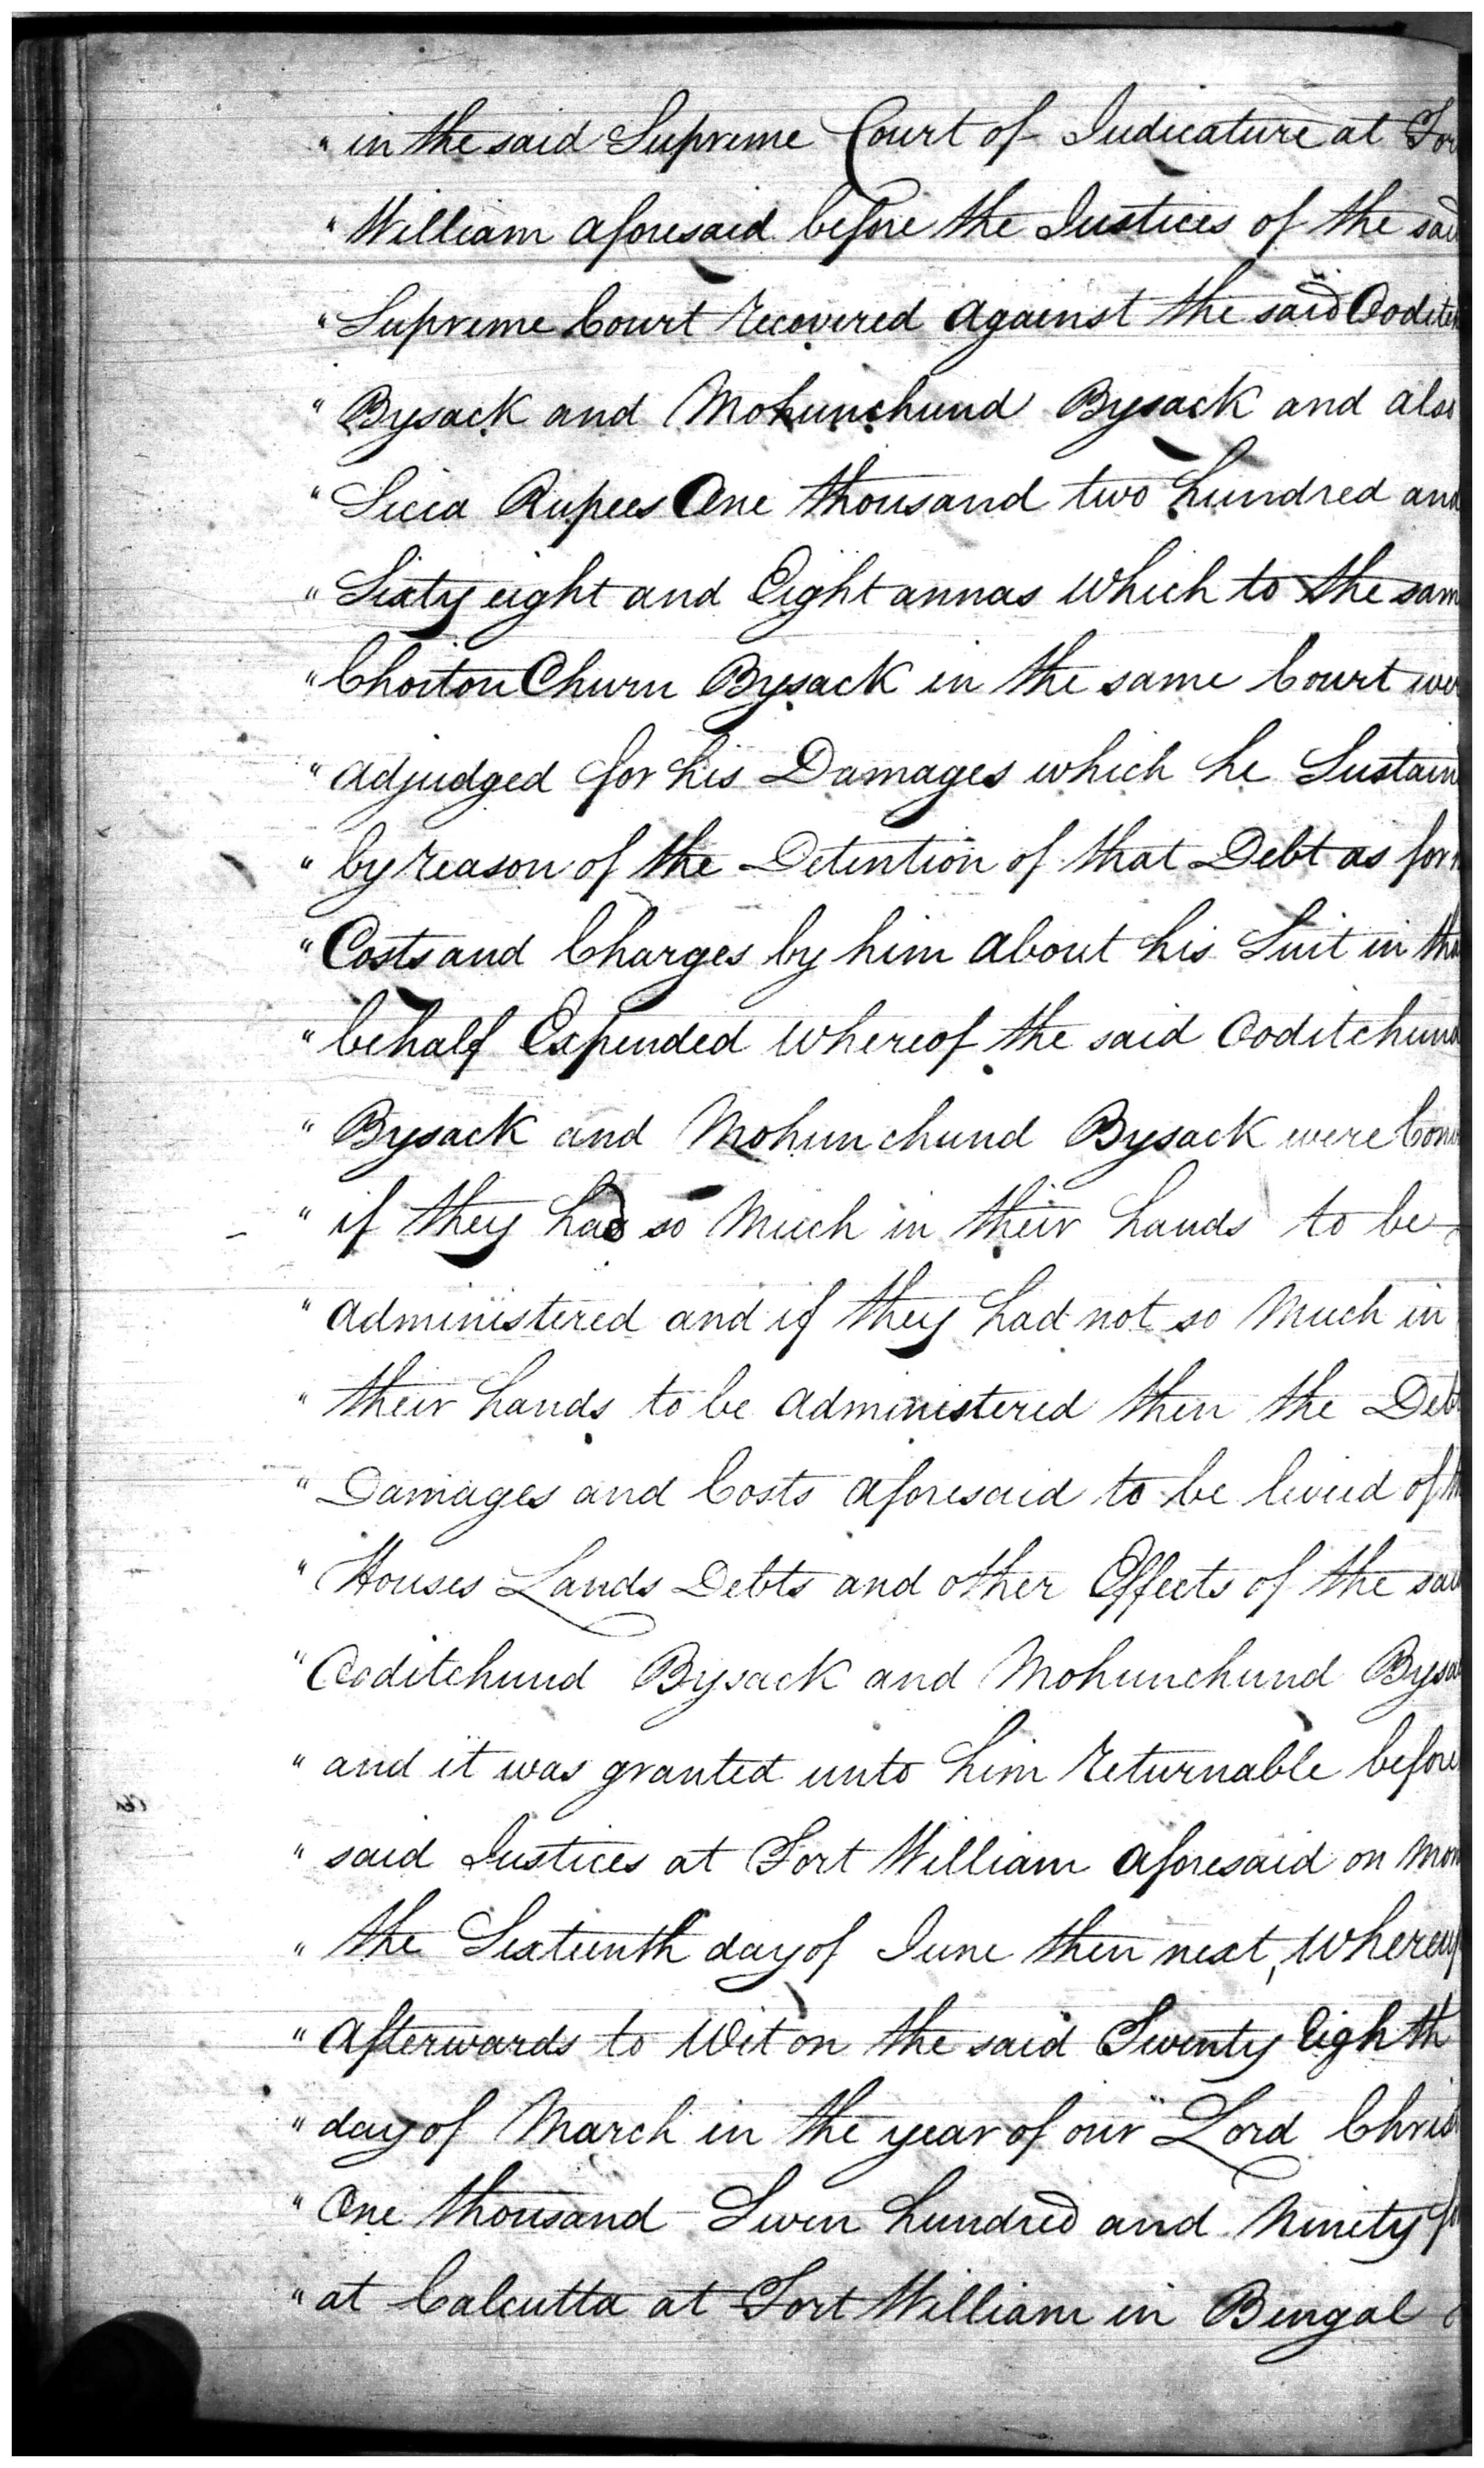 " in the said Supreme Court of Judicature at For
" William aforesaid before the Justices of the said
" Supreme Court recovered against the said Oodit
" Bysack and Mohunchund Bysack and also
" Sicca Rupees One thousand two hundred and
" Sixty eight and Eight annas which to the sam
" Choiton Churn Bysack in the same Court wer
" adjudged for his Damages which he Sustain
" by reason of the Detention of that Debt as for
" Costs and Charges by him about his Suit in tha
" behalf Expended whereof the said Ooditchund
" Bysack and Mohunchund Bysack were Conv
" if they had so Much in their hands to be
" administered and if they had not so Much in
" their hands to be administered then the Deb
" Damages and Costs aforesaid to be levied of th
" Houses Lands Debts and other Effects of the sai
" Ooditchund Bysack and Mohunchund Bysa
" and it was granted unto him returnable before
" said Justices at Fort William aforesaid on Mon
" the Sixteenth day of June then next, whereup
" afterwards to Wit on the said Twenty Eighth
" day of March in the year of our Lord Christ
" One thousand Seven hundred and Ninety fo
" at Calcutta at Fort William in Bengal